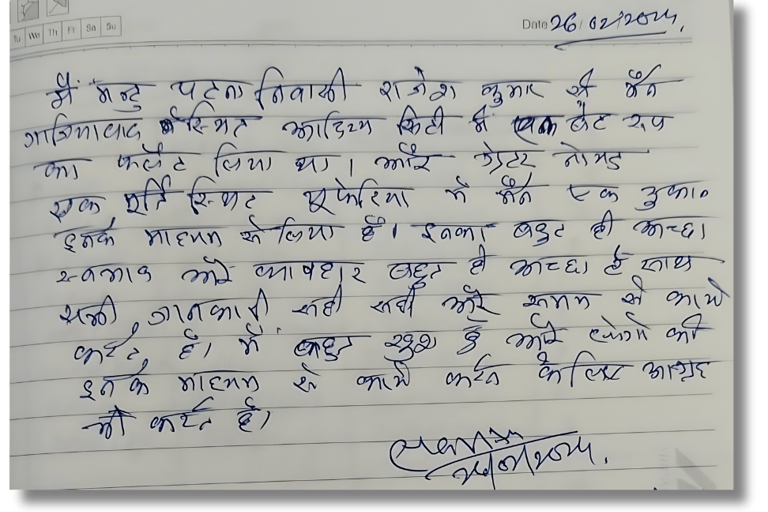 Tu We Th Fr Sa Su
Date 26/02/2024,
मैं मन्टु पटना निवासी राजेश कुमार से मैंने
गाजियाबाद में स्थित आदित्य सिटी में एक बेड रूम
का फ्लैट लिया था। और ग्रेटर नोएडा
एक मूर्ति स्थित में मैंने एक दुकान
इनके माध्यम से लिया है। इनका बहुत ही अच्छा
स्वभाव और व्यवहार बहुत ही अच्छा है साथ
सभी जानकारी सही सही और समय से कार्य
करते है। मैं बहुत खुश हूँ और लोगो को
इनके माध्यम से कार्य करने के लिए आग्रह
भी करते है।